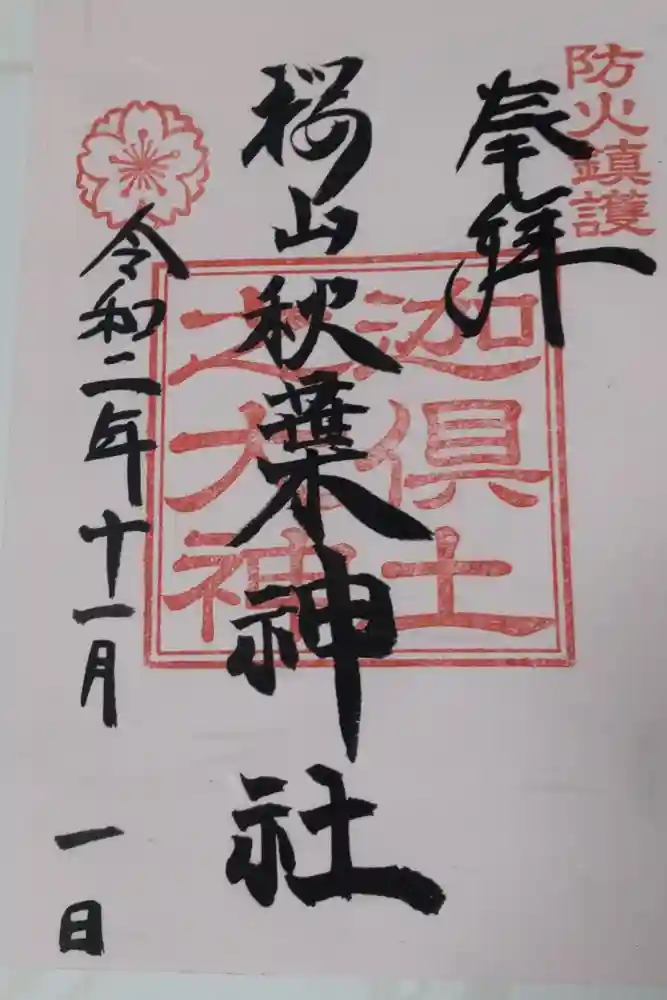 防火鎮護
奉拝
桜山秋葉神社
迦倶土
之大神
令和二年十一月 一日